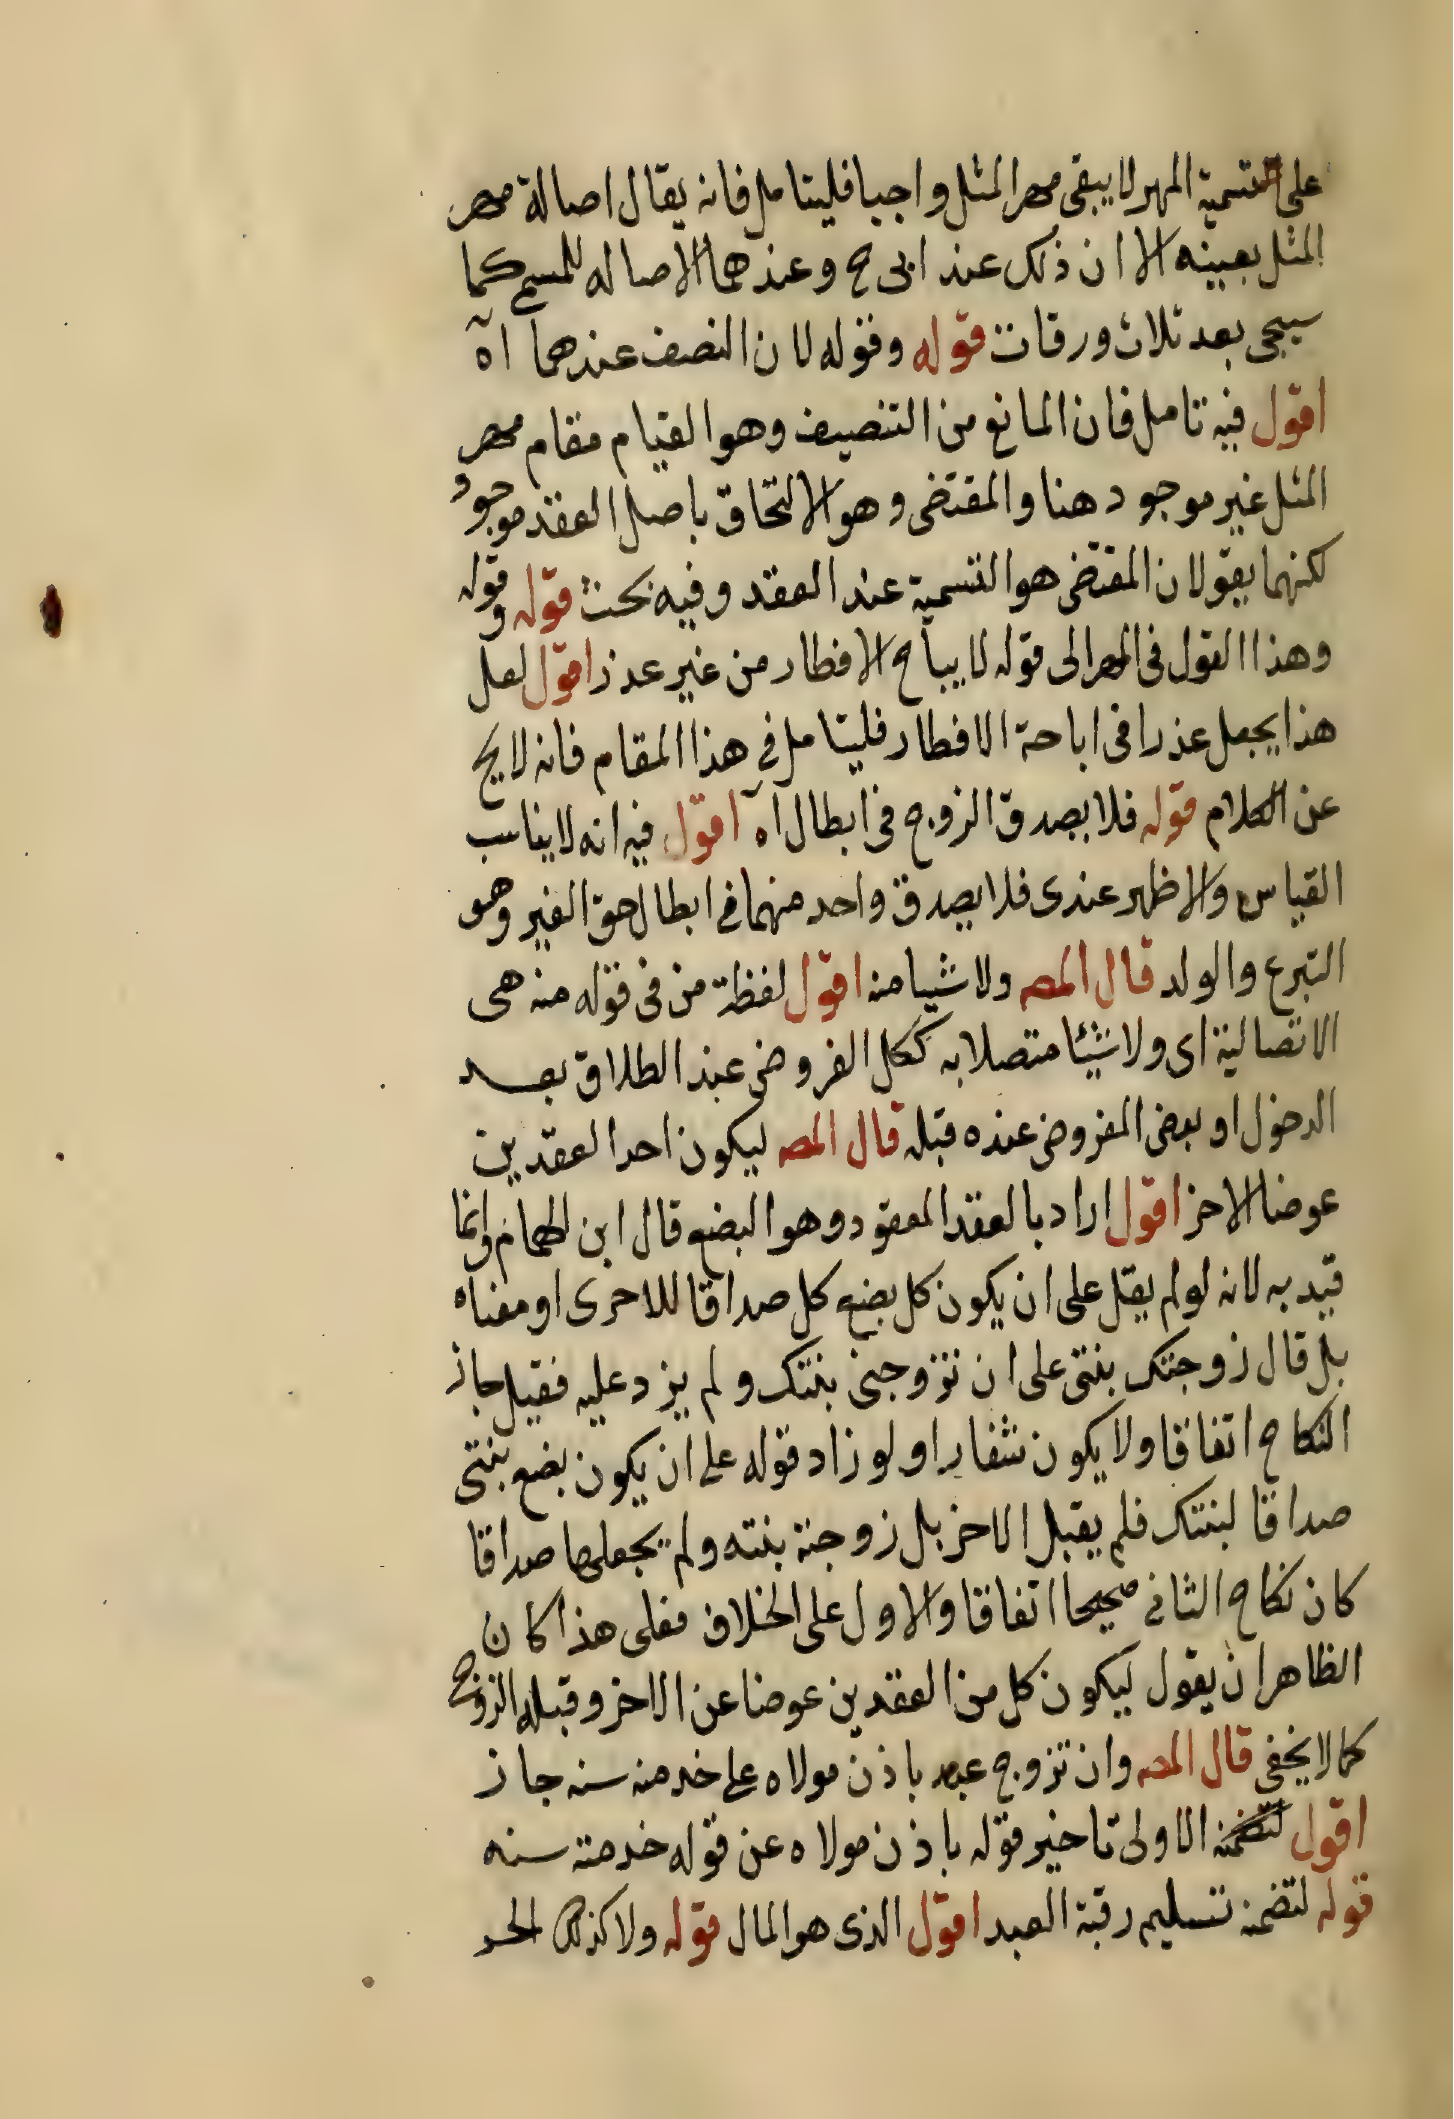 على تسمية المهر لا يبقى مهر المثل واجبا فليتامل فانه يقال اصالة مهر
المثل بعينه الا ان ذلك عند ابى ح وعندهما الاصاله للمسمى كما
سيجى بعد ثلاث ورقات قوله وقوله لان النصف عندهما آه
اقول فيه تامل فان المانع من التنصيف وهو القيام مقام مهر
المثل غير موجود هنا والمقتضى وهو الالتحاق باصل العقد موجود
لكنهما يقولان المقتضى هو التسمية عند العقد وفيه بحث قوله وقوله
وهذا القول فى المهر الى قوله لا يباح الافطار من غير عذر اقول لعل
هذا يجعل عذرا فى اباحة الافطار فليتامل فى هذا المقام فانه لا يخ
عن الكلام قوله فلا يصدق الزوج فى ابطال آه اقول فيه انه لا يناسب
القياس والاظهر عندى فلا يصدق واحد منهما فى ابطال حق الغير وهو
التبرع والولد قال المصه ولا شيا منه اقول لفظة من فى قوله منه هى
الاتصالية اى ولا شيئا متصلا به ككل الفروض عند الطلاق بعد
الدخول او بعض المفروض عنده قبله قال المصه ليكون احد العقدين
عوضا الاخر اقول اراد بالعقد المعقود وهو البضع قال ابن الهمام وانما
قيد به لانه لو لم يقل على ان يكون كل بضع كل صداقا للاخرى او معناه
بل قال زوجتك بنتى على ان تزوجنى بنتك ولم يزد عليه فقيل جاز
النكاح اتفاقا ولا يكون شغارا ولو زاد قوله على ان يكون بضع بنتى
صداقا لبنتك فلم يقبل الاخر بل زوجته بنته ولم يجعلها صداقا
كان نكاح الثانى صحيحا اتفاقا والاول على الخلاف فعلى هذا كان
الظاهر ان يقول ليكون كل من العقدين عوضا عن الاخر وقبله الزوج
كما لا يخفى قال المصه وان تزوج عبد باذن مولاه على خدمته سنه جاز
اقول الاولى تاخير قوله باذن مولاه عن قوله خدمته سنه
قوله لتضمنه تسليم رقبة العبد اقول الذى هو المال قوله ولا كذلك الحر